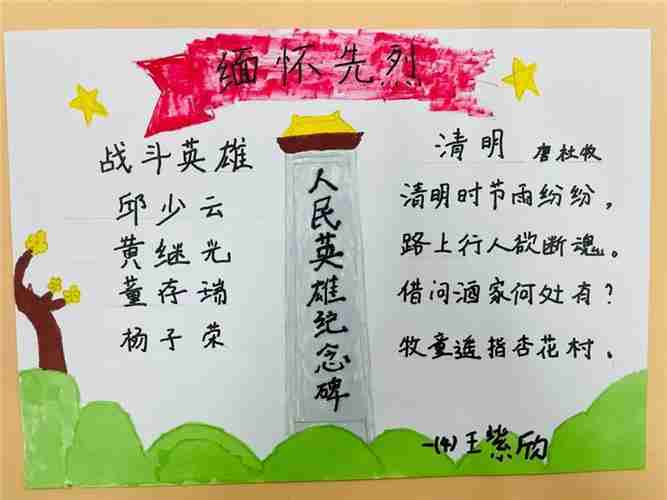 缅怀先烈
战斗英雄
邱少云
黄继光
董存瑞
杨子荣
人民英雄纪念碑
清明 唐杜牧
清明时节雨纷纷，
路上行人欲断魂。
借问酒家何处有？
牧童遥指杏花村。
一(4)王紫欣